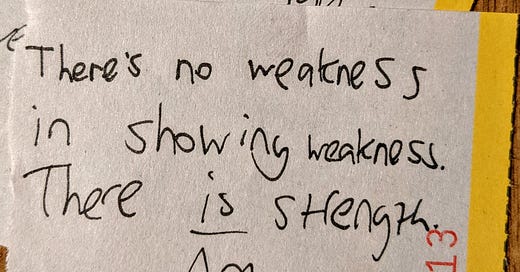 There's no weakness
in showing weakness.
There is strength.
13